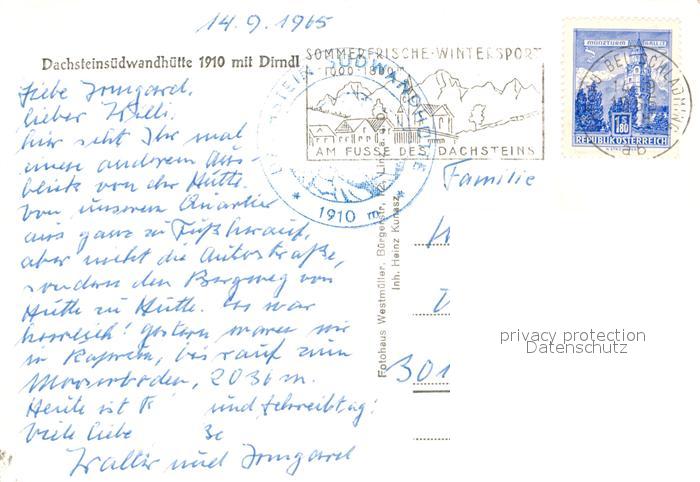 14.9.1965
Dachsteinsüdwandhütte 1910 mit Dirndl
SOMMERFRISCHE-WINTERSPORT
AM FUSSE DES DACHSTEINS
DACHSTEIN-SÜDWANDHÜTTE
* 1910 m *
MÜNZTURM HALL I.T.
S 1.80
REPUBLIK ÖSTERREICH
BEI SCHLADMING
Liebe Irmgard,
lieber Willi.
hier seht Ihr mal
einen anderen Aus-
blick von der Hütte.
Von unserem Quartier
aus ganz zu Fuß herauf,
aber nicht die Autostraße,
sondern den Bergweg von
Hütte zu Hütte. Es war
herrlich! Gestern waren wir
in Kaprun, bis rauf zum
Mooserboden, 2036 m.
Heute ist und Schreibtag!
Viele liebe
Walter und Irmgard
Familie
301
Fotohaus Westmüller, Bürgerstr.
Inh. Heinz Kunasz
privacy protection
Datenschutz